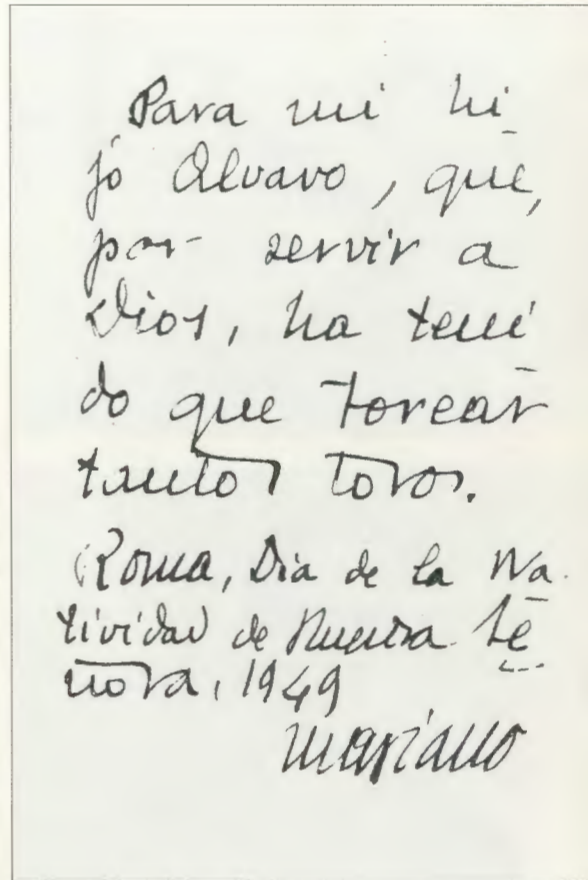 Para mi hi
jo Alvaro, que,
por servir a
Dios, ha teni
do que torear
tantos toros.
Roma, Dia de la Na
tividad de Nuestra Se
ñora, 1949
Mariano